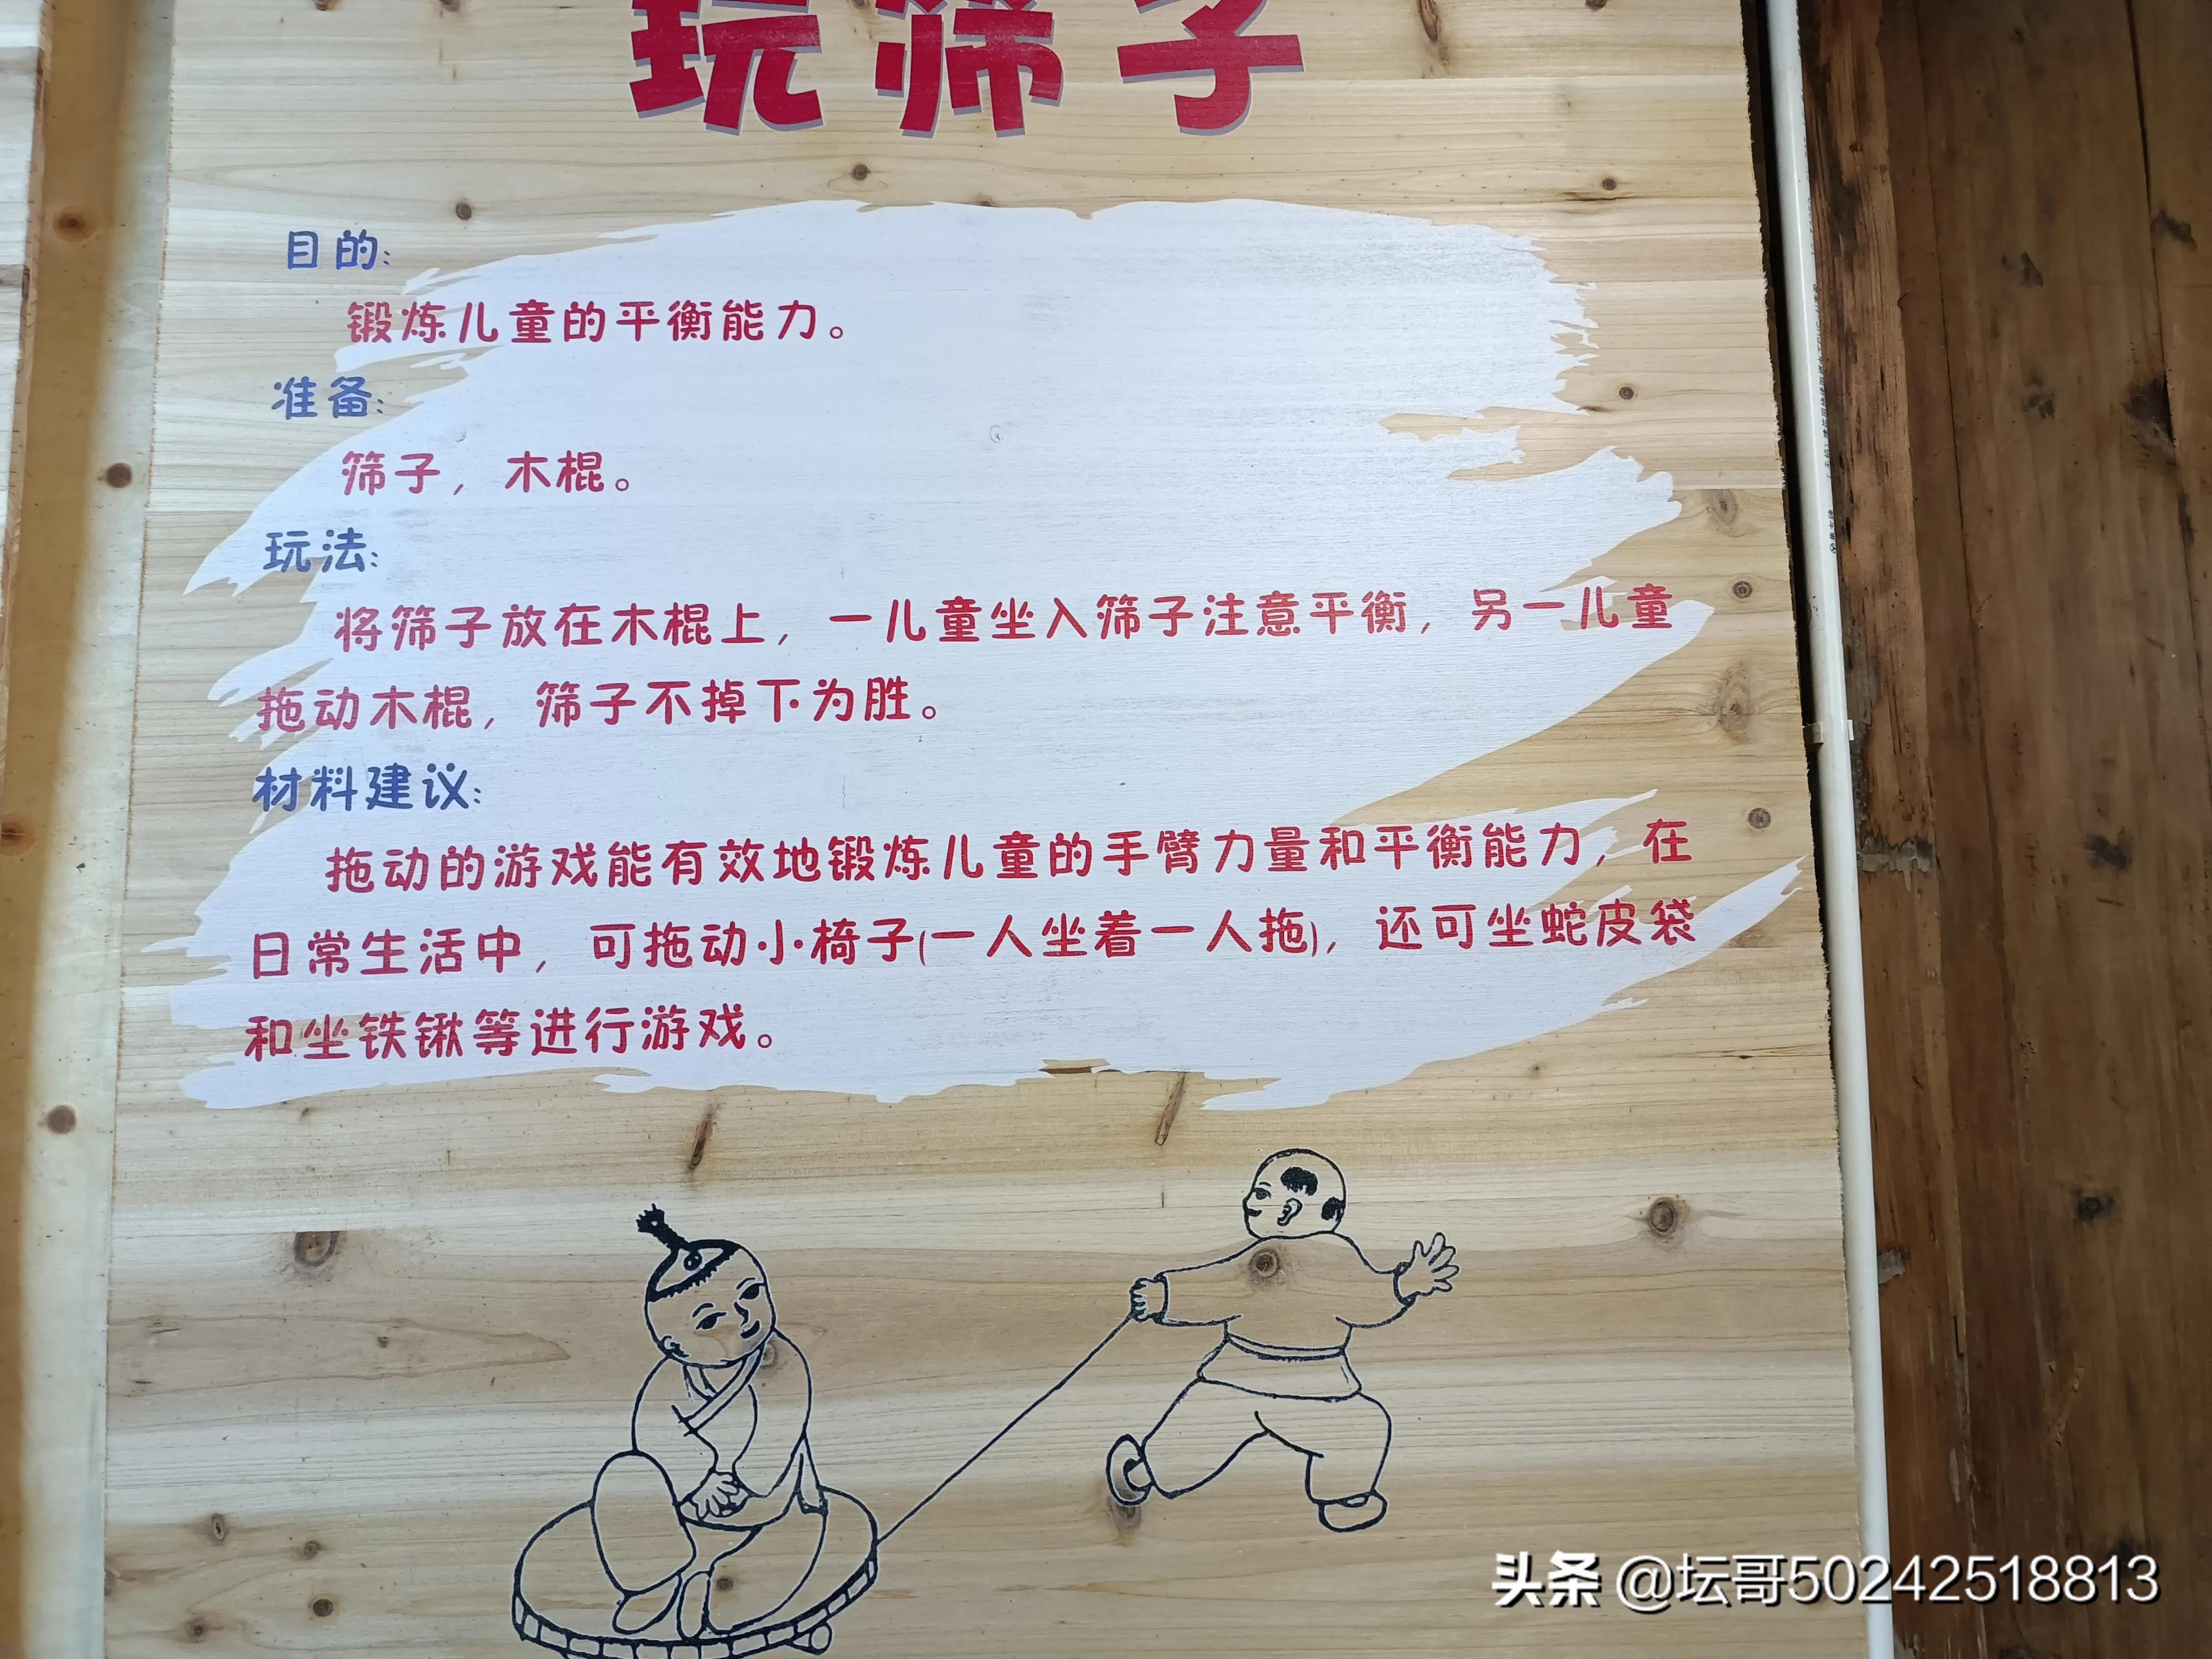 玩筛子
目的:
锻炼儿童的平衡能力。
准备:
筛子，木棍。
玩法:
将筛子放在木棍上，一儿童坐入筛子注意平衡，另一儿童
拖动木棍，筛子不掉下为胜。
材料建议:
拖动的游戏能有效地锻炼儿童的手臂力量和平衡能力，在
日常生活中，可拖动小椅子(一人坐着一人拖)，还可坐蛇皮袋
和坐铁锹等进行游戏。
头条 @坛哥50242518813